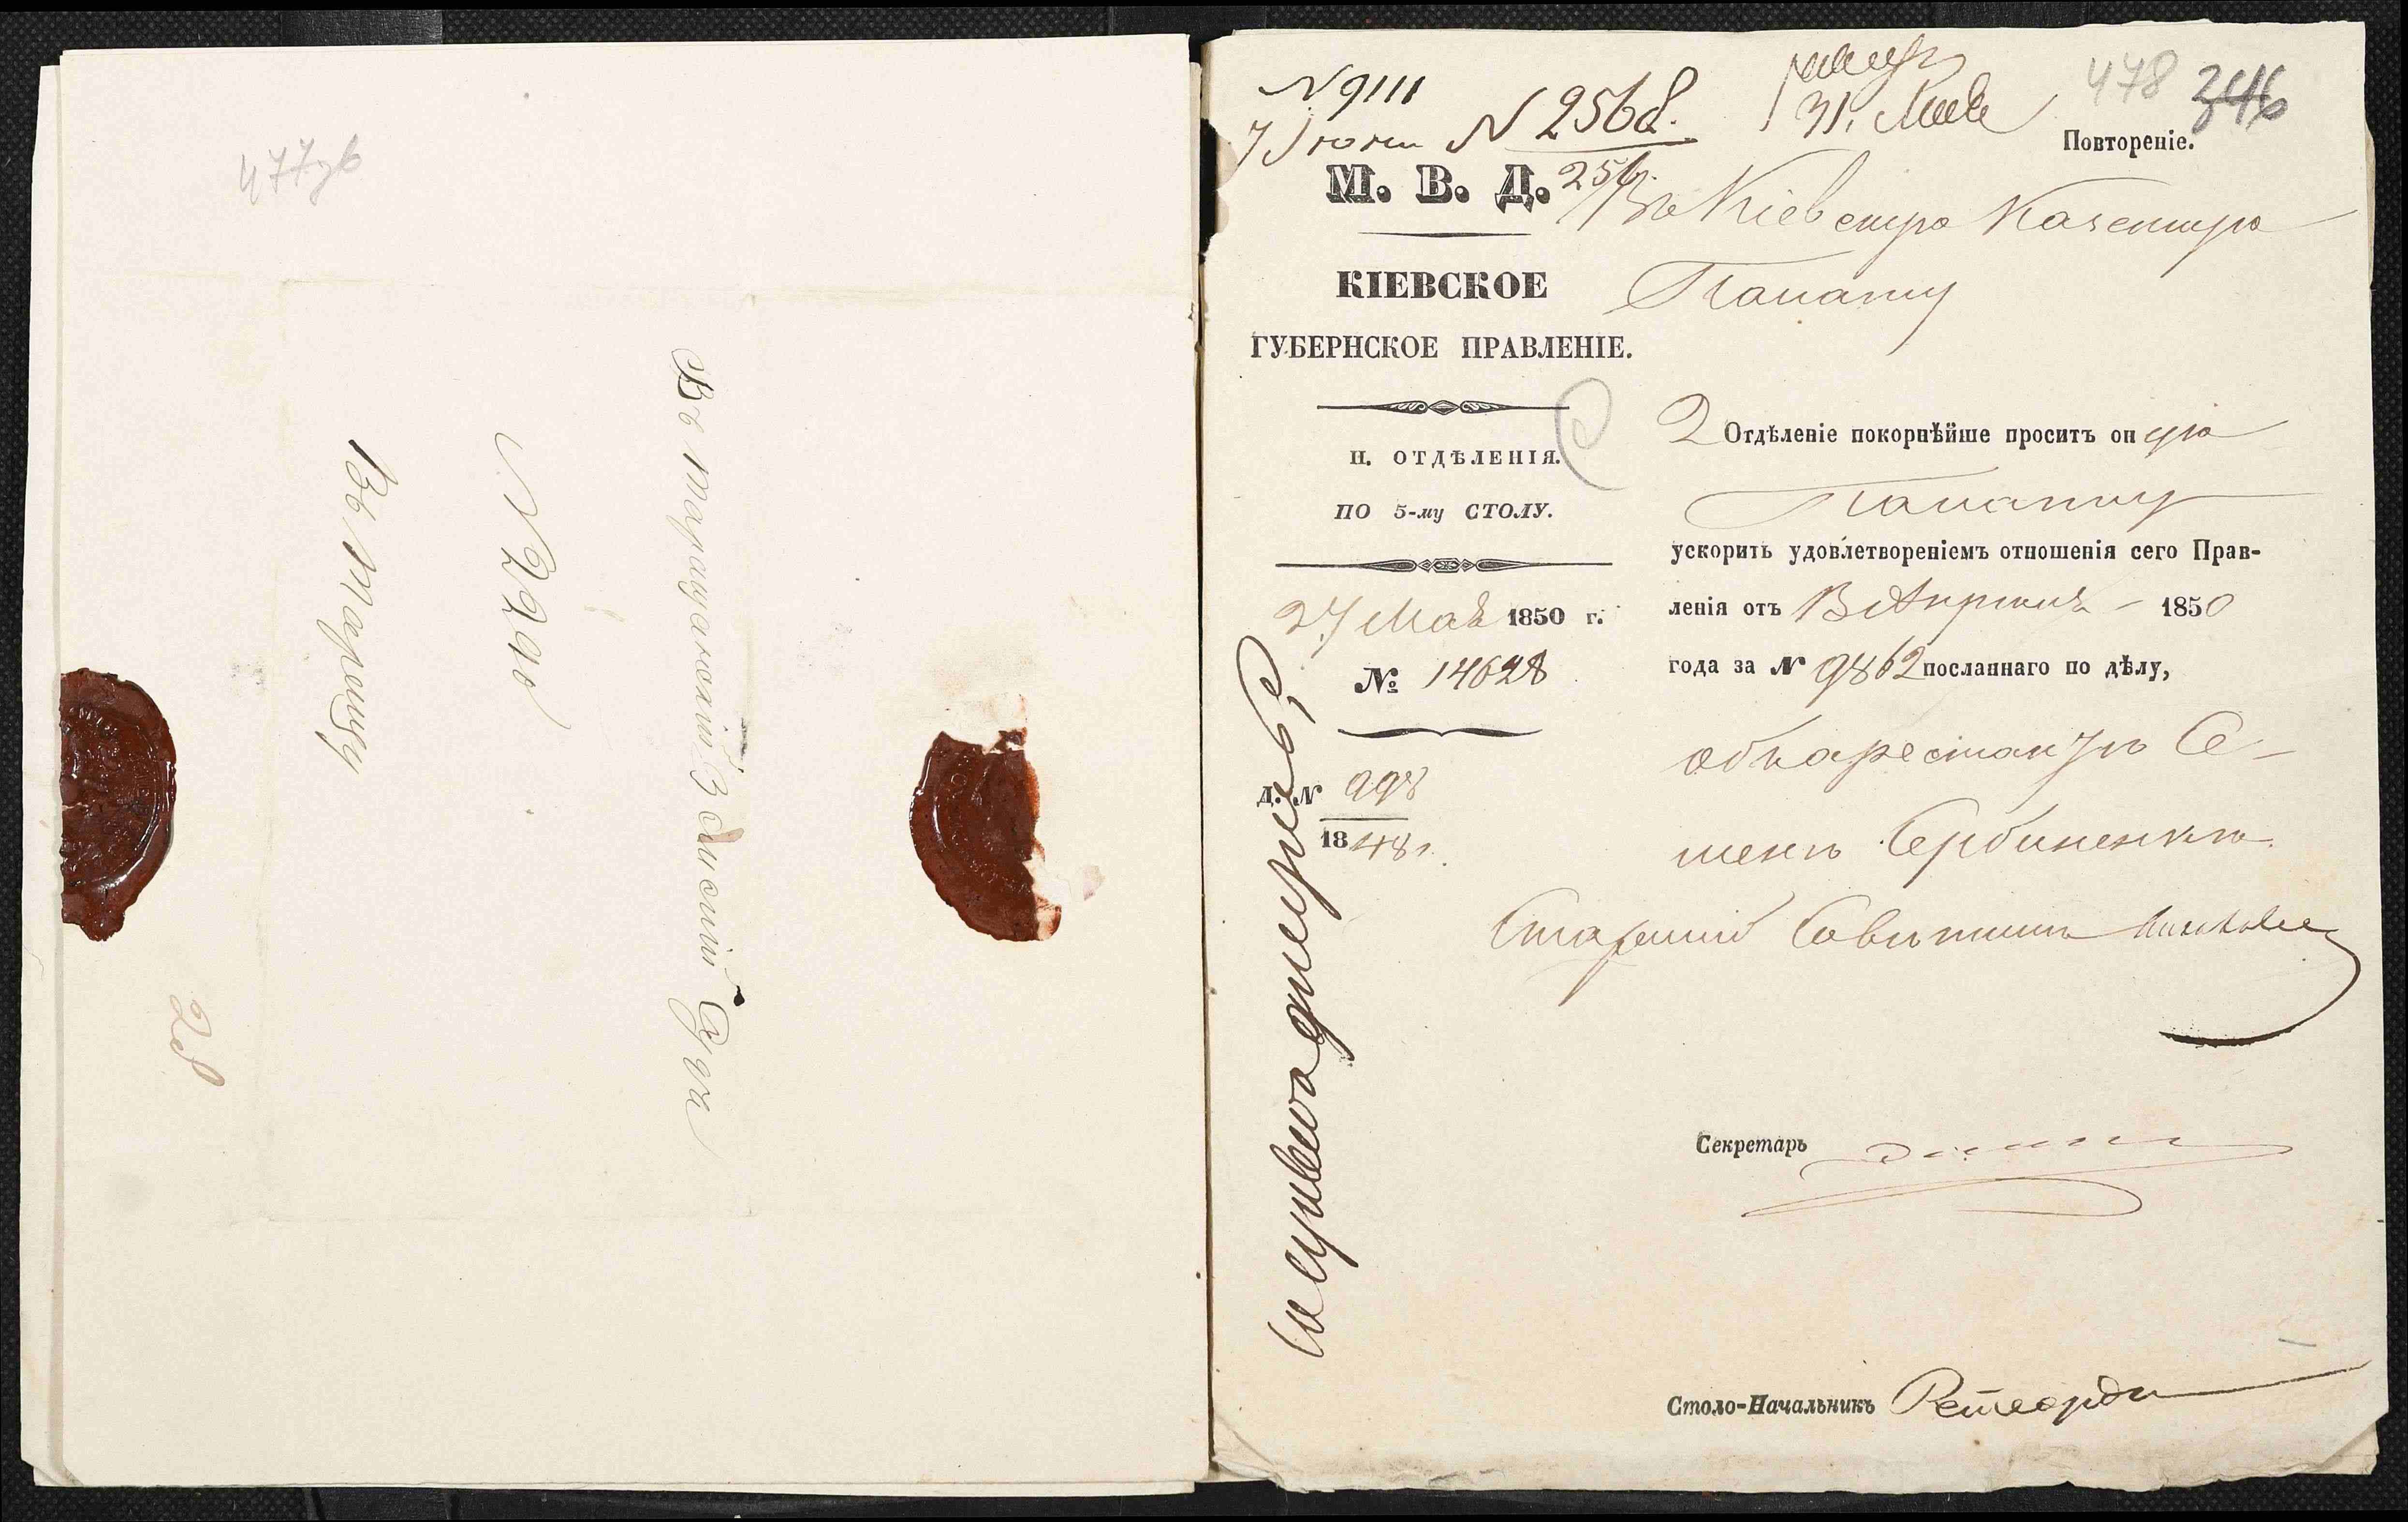 477 зв
Въ Таращанскій Земскій Судъ
N 2290
Въ Таращу
28
N 9111
7 Іюня
N 2568.
256
31. Мая
478
346
Повтореніе.
М. В. Д.
Въ Кіевскую Казенную
Палату
КІЕВСКОЕ
ГУБЕРНСКОЕ ПРАВЛЕНІЕ.
II. ОТДѢЛЕНІЯ.
ПО 5-му СТОЛУ.
27 Мая 1850 г.
№ 14628
Д. N 998
1848 г.
2 Отдѣленіе покорнѣйше проситъ оную
Палату
ускорить удовлетвореніемъ отношенія сего Прав-
ленія отъ Апрѣля 1850
года за N 9862 посланнаго по дѣлу,
объ арестантѣ Се-
менѣ Сербиненкѣ.
Старшій Совѣтникъ
Секретарь
Столо-Начальникъ